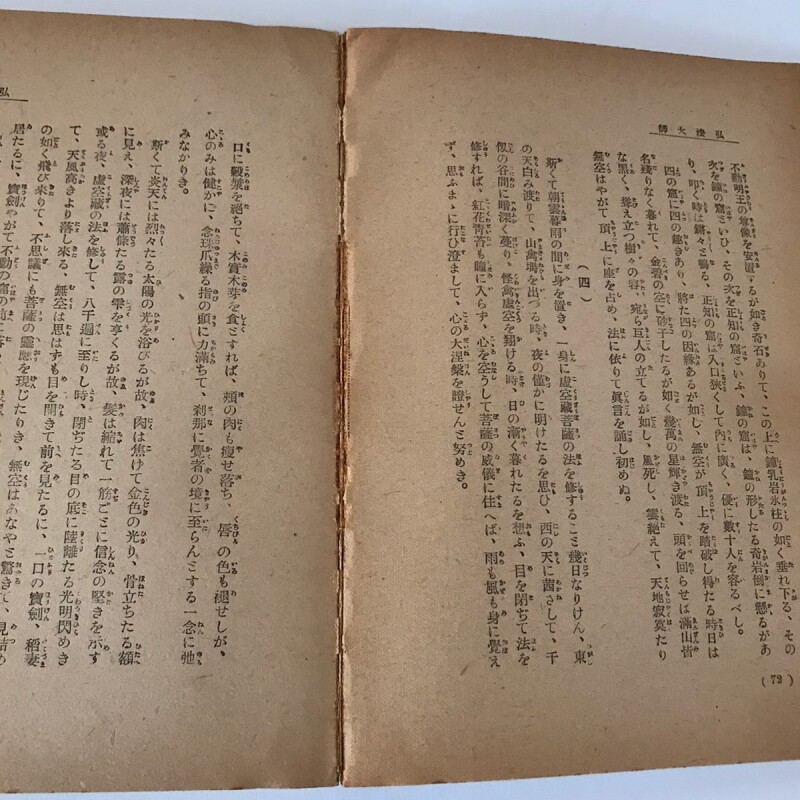 弘法大師
(72)
不動明王の尊像を安置するが如き奇石ありて、この上に鐘乳岩氷柱の如く垂れ下る、その
次を鐘の窟といひ、その次を正知の窟といふ、鐘の窟は、鐘の形したる奇岩倒に懸るがあ
り、叩く時は鏘々と鳴る、正知の窟は入口狹くして内に廣く、優に數十人を容るべし。
四の窟に四の趣きあり、將た四の因緣あるが如し、無空が頂上を踏破し得たる時日は
名殘りなく暮れて、金碧の空に砂子したるが如く幾萬の星輝き渡る、頭を回らせば滿山皆
な黑く、聳え立つ樹々の容、宛ら巨人の立てるが如し、風死し、雲絕えて、天地寂寞たり
無空はやがて頂上に座を占め、法に依りて眞言を誦し初めぬ。
(四)
斯くて朝雲暮雨の間に身を置き、一身に虛空藏菩薩の法を修すること幾日なりけん、東
の天白み渡りて、山禽塒を出づる時、夜の僅かに明けたるを思ひ、西の天に茜さして、千
仭の谷間に暗深く蔓り、怪禽虛空を翔ける時、日の漸く暮れたるを想ふ、目を閉ぢて法を
修すれば、紅花靑苔も瞳に入らず、心を空うして菩薩の威儀に住へば、雨も風も身に覺え
ず、思ふまゝに行ひ澄まして、心の大涅槃を證せんと努めき。
弘
口に穀漿を絕ちて、木實木芽を食とすれば、頬の肉も瘦せ落ち、唇の色も褪せしが、
心のみは健かに、念珠爪繰る指の頭に力滿ちて、刹那に覺者の境に至らんとする一念に弛
みなかりき。
斯くて炎天には烈々たる太陽の光を浴びるが故、肉は焦けて金色の光り、骨立ちたる額
に見え、深夜には蕭條たる露の雫を享くるが故、髮は縮れて一筋ごとに信念の堅きを示す
或る夜、虛空藏の法を修して、八千遍に至りし時、閉ぢたる目の底に陸離たる光明閃めき
て、天風高きより落し來る、無空は思はずも目を開きて前を見たるに、一口の寶劍、稻妻
の如く飛び來りて、不思議にも菩薩の靈應を現じたりき、無空はあなやと驚きて、見詰め
居たるに、寶劍やがて不動の窟の前に落